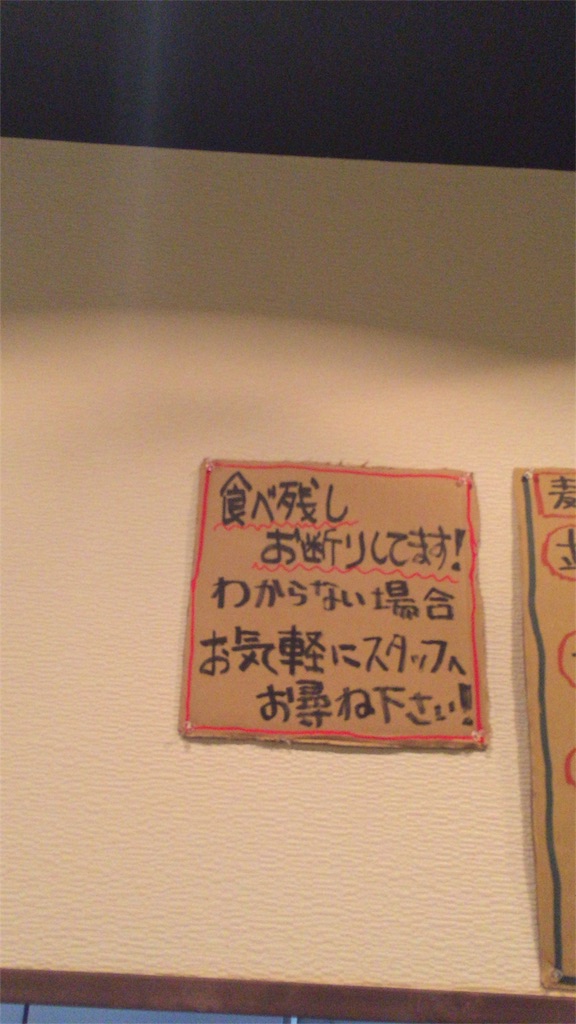 食べ残し
お断りしてます!
わからない場合
お気軽にスタッフへ
お尋ね下さい!!